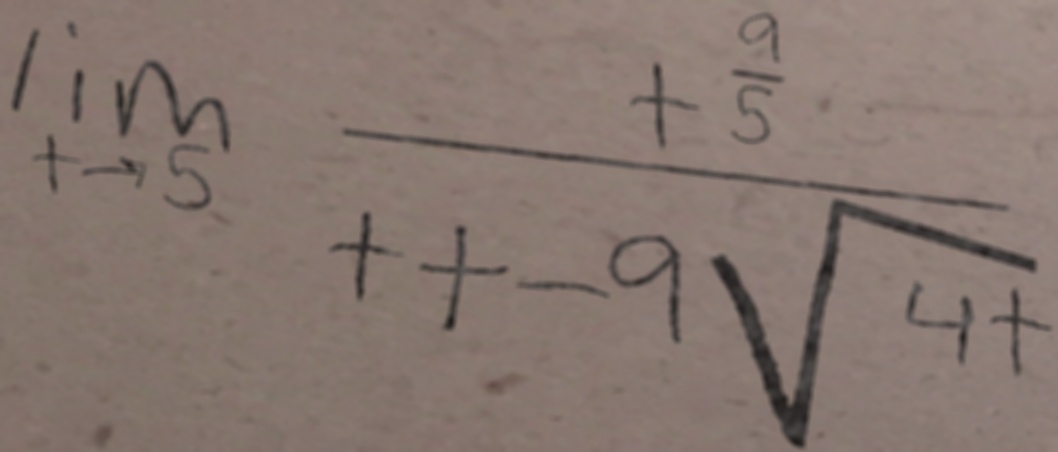 lim t→5 \frac{t^{\frac{9}{5}}}{t + -9\sqrt{4t}}